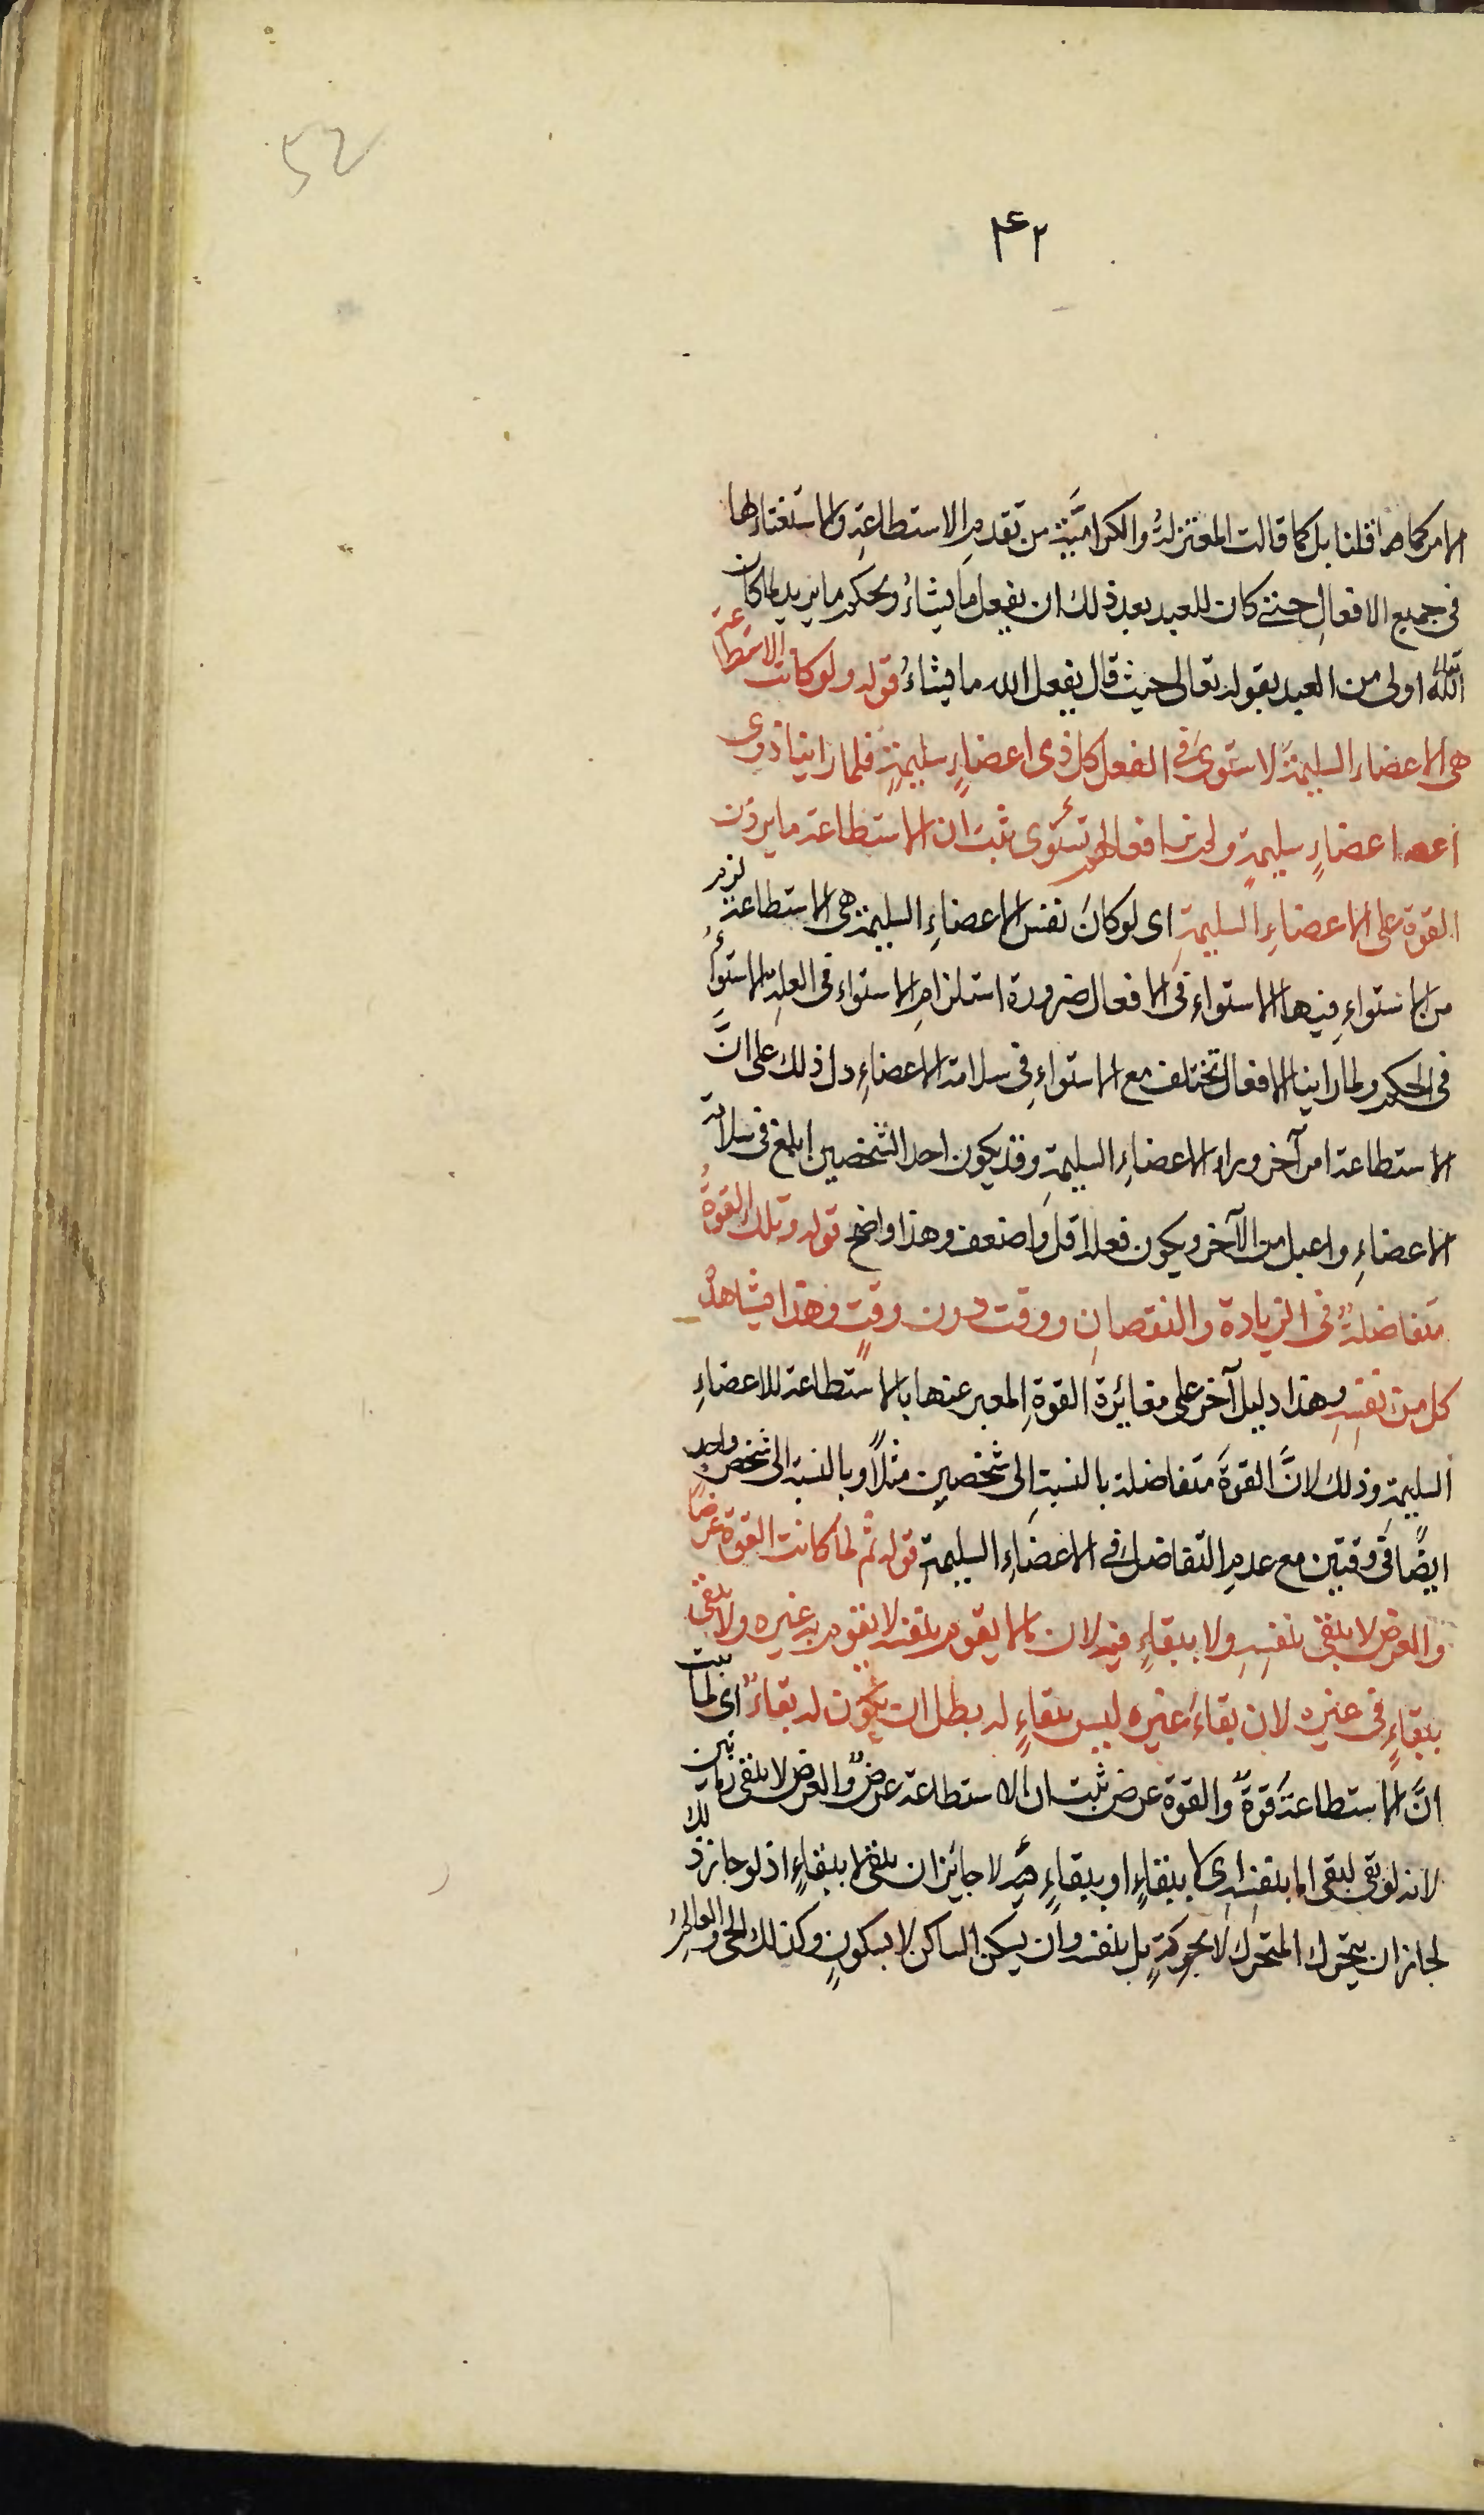 52
۴۲
الامر كما قلنا بل كما قالت المعتزلةُ والكراميَّة من تقدمِ الاستطاعةِ والاستغناء لها
فى جميع الافعالِ حتى كان للعبد بعد ذلك ان يفعل ما يشاءُ ويحكم ما يريد لما كان
اللّٰه تعالى اولى من العبد بقوله تعالى حيث قال يفعل الله ما يشاءُ قوله ولو كانت الاستطاعة
هى الاعضاء السليمةَ لاستوىَ فى الفعل كل ذى اعضاءٍ سليمةٍ فلما راينا ذوى
اعضاءٍ سليمةٍ ولم نر افعالهم تستوى ثبت ان الاستطاعة ما يرون
القوة على الاعضاءِ السليمةِ اى لو كانَ نفس الاعضاءِ السليمة هى الاستطاعة لزم
من الاستواءِ فيها الاستواء فى الافعال ضرورة استلزامِ الاستواء فى العلةِ الاستواءَ
فى الحكم ولما راينا الافعال تختلف مع الاستواءِ فى سلامة الاعضاءِ دل ذلك على انَّ
الاستطاعة امر آخر وراء الاعضاءِ السليمةِ وقد يكون احد الشخصين ابلغ فى سلامة
الاعضاءِ واعبل من الآخر ويكون فعله اقل واضعف وهذا واضح قوله وتلك القوةُ
متفاضلةٌ فى الزيادة والنقصانِ ووقت دون وقتٍ وهذا يشاهدُ
كل من نفسِهِ وهذا دليل آخر على مغائرة القوةِ المعبر عنها بالاستطاعة للاعضاءِ
السليمةِ وذلك لانَّ القوةَ متفاضلة بالنسبةِ الى شخصينِ مثلًا وبالنسبة الى شخص واحد
ايضًا فى وقتين مع عدمِ التفاضل فى الاعضاءِ السليمةِ قوله ثم لما كانت القوة عرضًا
والعرض لا يبقى بنفسِهِ ولا ببقاءٍ فيه لان مالا يقوم بنفسه لا يقوم به غيره ولا يبقى
ببقاءٍ فى غيره لان بقاءَ غيره ليس ببقاءٍ له بطل ان يكون له بقاءٌ اى لما ثبت
انَّ الاستطاعةَ قوةٌ والقوة عرض ثبت ان الاستطاعة عرضٌ والعرض لا يبقى زمانين
لانه لو بقى لبقى اما بنفسه اى لا ببقاءٍ او ببقاءٍ فيه لا جايز ان يبقى لا ببقاءٍ اذ لو جاز ذلك
لجاز ان يتحرك المتحرك لا بحركةٍ بل بنفسه وان يسكن الساكن لا بسكونٍ وكذلك الحى والعالمُ